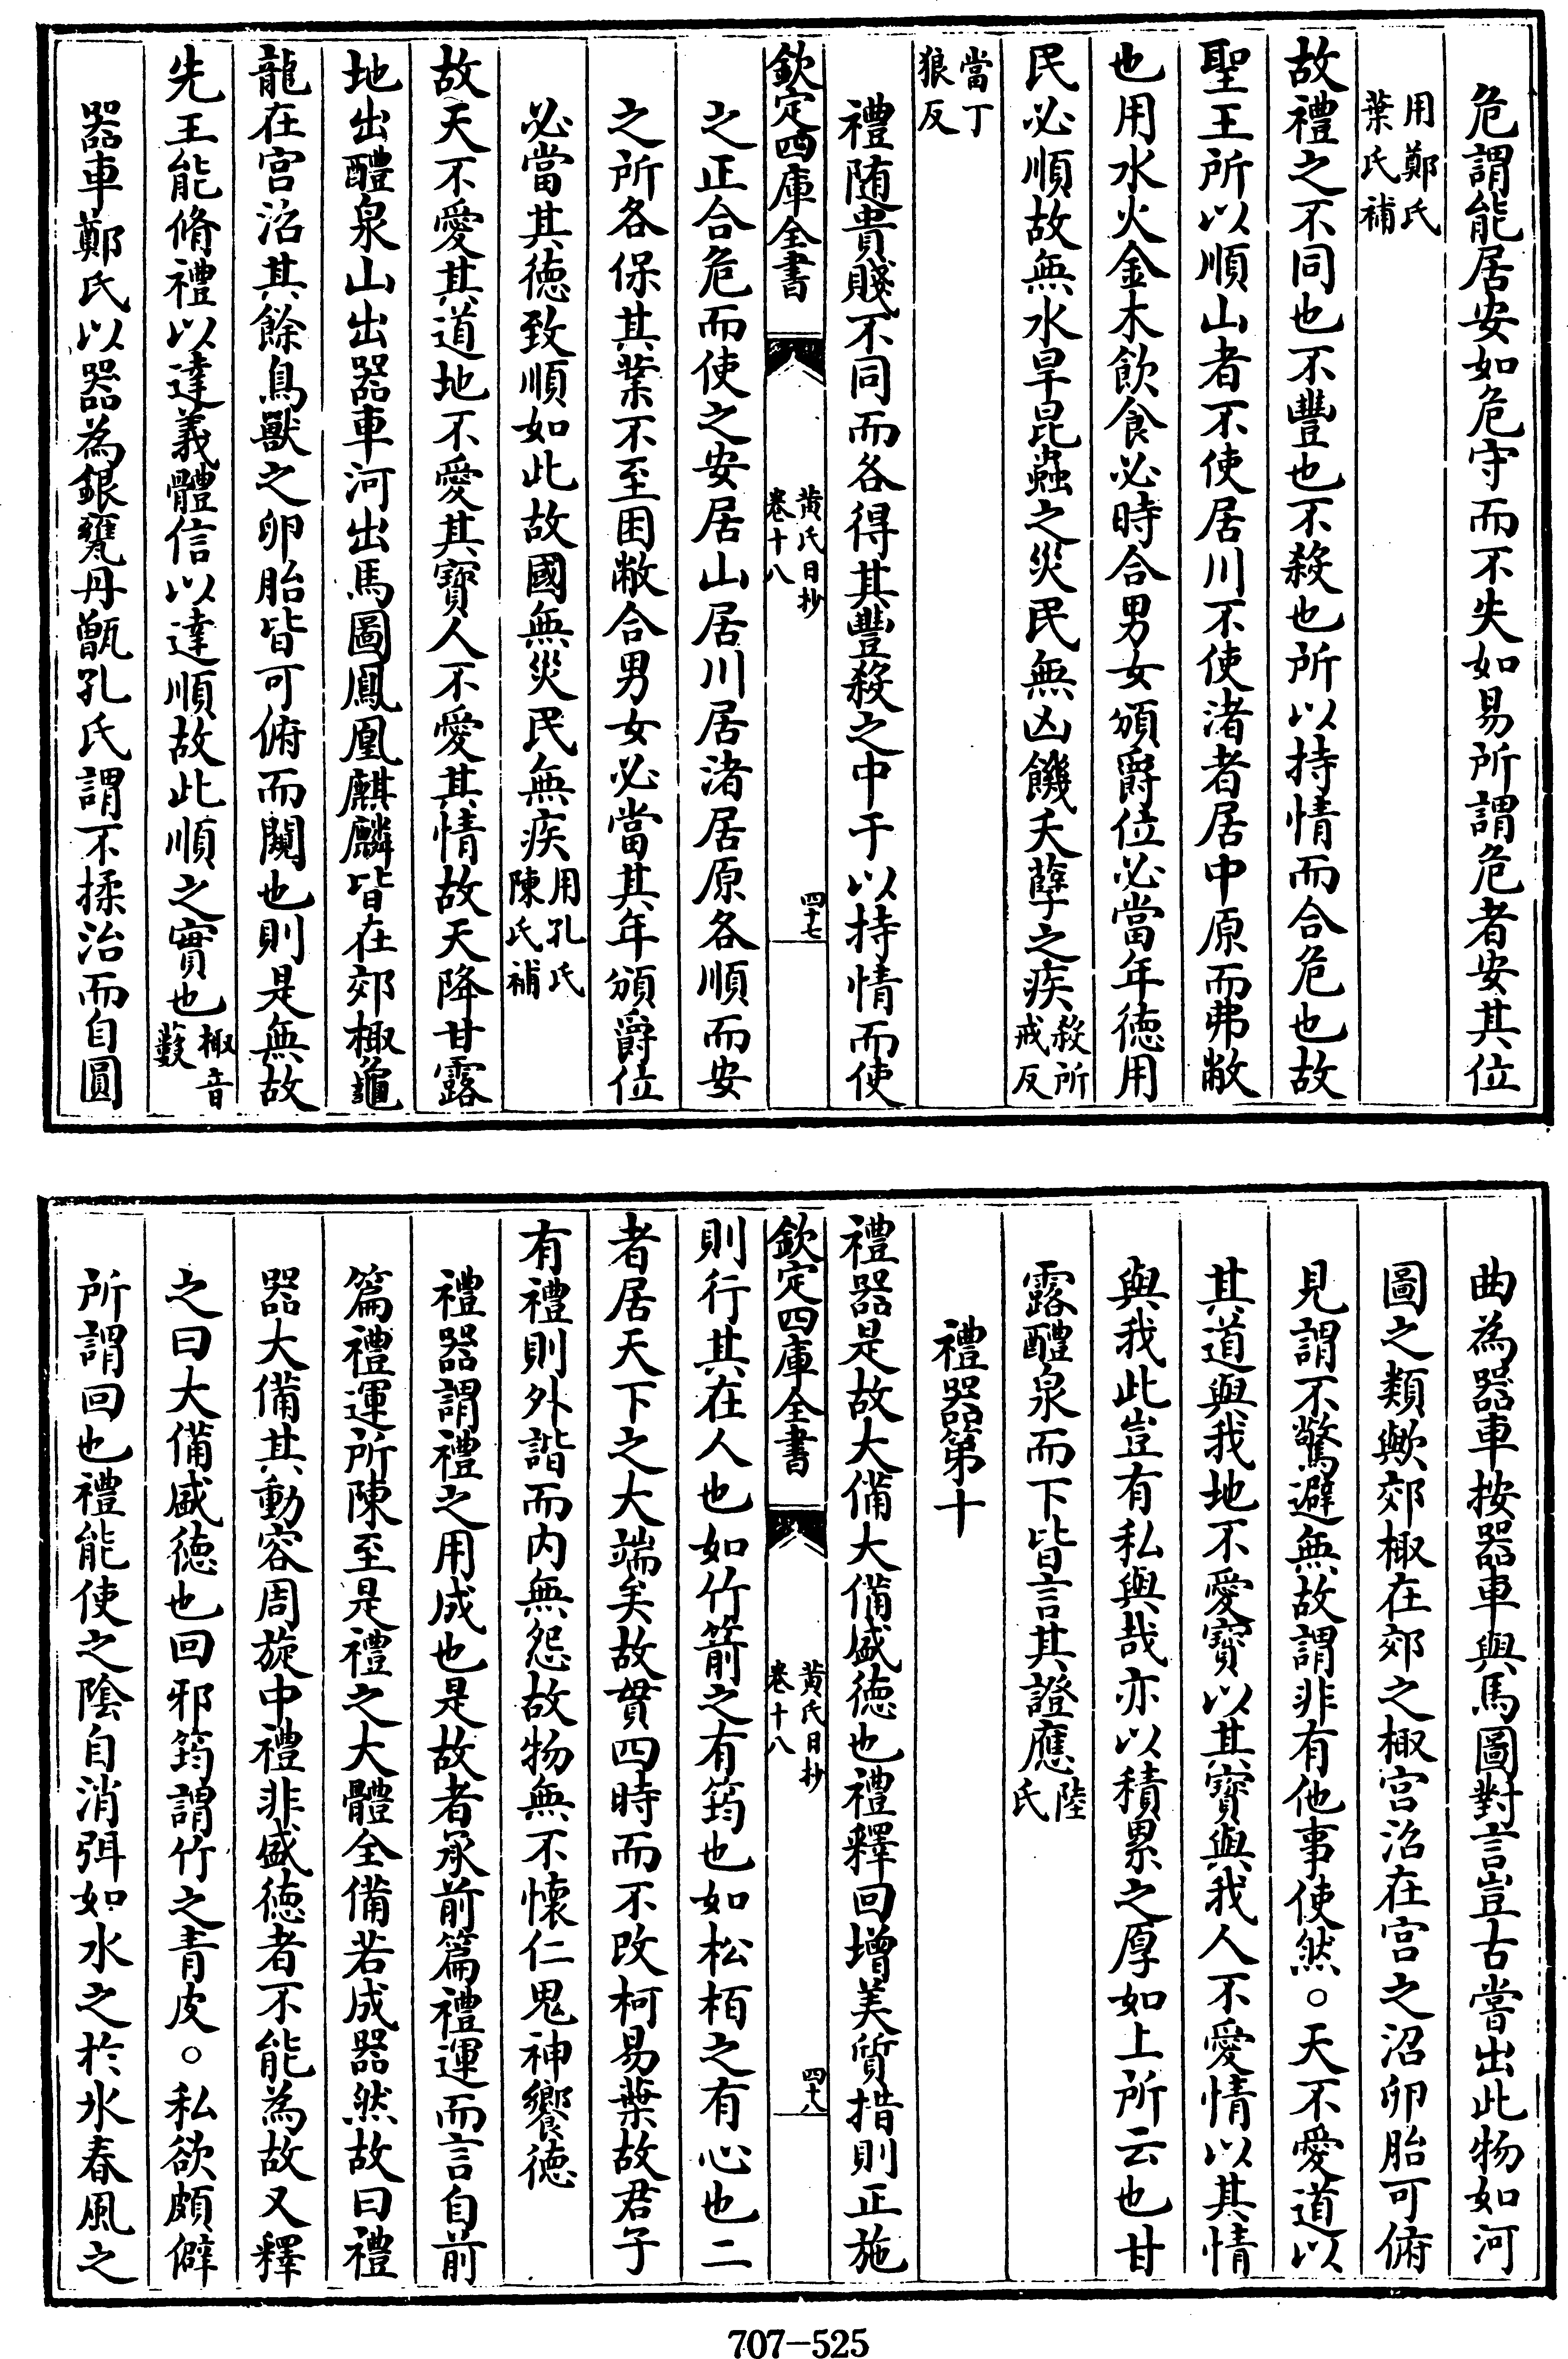 危謂能居安如危守而不失如易所謂危者安其位
用鄭氏
葉氏補
故禮之不同也不豐也不殺也所以持情而合危也故
聖王所以順山者不使居川不使渚者居中原而弗敝
也用水火金木飲食必時合男女頒爵位必當年徳用
民必順故無水旱昆蟲之災民無凶饑夭孽之疾殺所
戒反
當丁
狼反
禮隨貴賤不同而各得其豐殺之中于以持情而使
欽定四庫全書
黄氏日抄
卷十八
四十七
之正合危而使之安居山居川居渚居原各順而安
之所各保其業不至困敝合男女必當其年頒爵位
必當其徳致順如此故國無災民無疾用孔氏
陳氏補
故天不愛其道地不愛其寳人不愛其情故天降甘露
地出醴泉山出器車河出馬圖鳳凰麒麟皆在郊棷龜
龍在宫沼其餘鳥獸之卵胎皆可俯而闚也則是無故
先王能脩禮以達義體信以達順故此順之實也棷音
藪
器車鄭氏以器為銀甕丹甑孔氏謂不揉治而自圓
曲為器車按器車與馬圖對言豈古嘗出此物如河
圖之類歟郊棷在郊之棷宫沼在宫之沼卵胎可俯
見謂不驚避無故謂非有他事使然○天不愛道以
其道與我地不愛寳以其寳與我人不愛情以其情
與我此豈有私與哉亦以積累之厚如上所云也甘
露醴泉而下皆言其證應陸
氏
禮器第十
禮器是故大備大備盛徳也禮釋回增美質措則正施
欽定四庫全書
黄氏日抄
卷十八
四十八
則行其在人也如竹箭之有筠也如松栢之有心也二
者居天下之大端矣故貫四時而不改柯易葉故君子
有禮則外諧而内無怨故物無不懐仁鬼神饗徳
禮器謂禮之用成也是故者承前篇禮運而言自前
篇禮運所陳至是禮之大體全備若成器然故曰禮
器大備其動容周旋中禮非盛徳者不能為故又釋
之曰大備盛徳也回邪筠謂竹之青皮○私欲頗僻
所謂回也禮能使之隂自消弭如水之於氷春風之
707-525